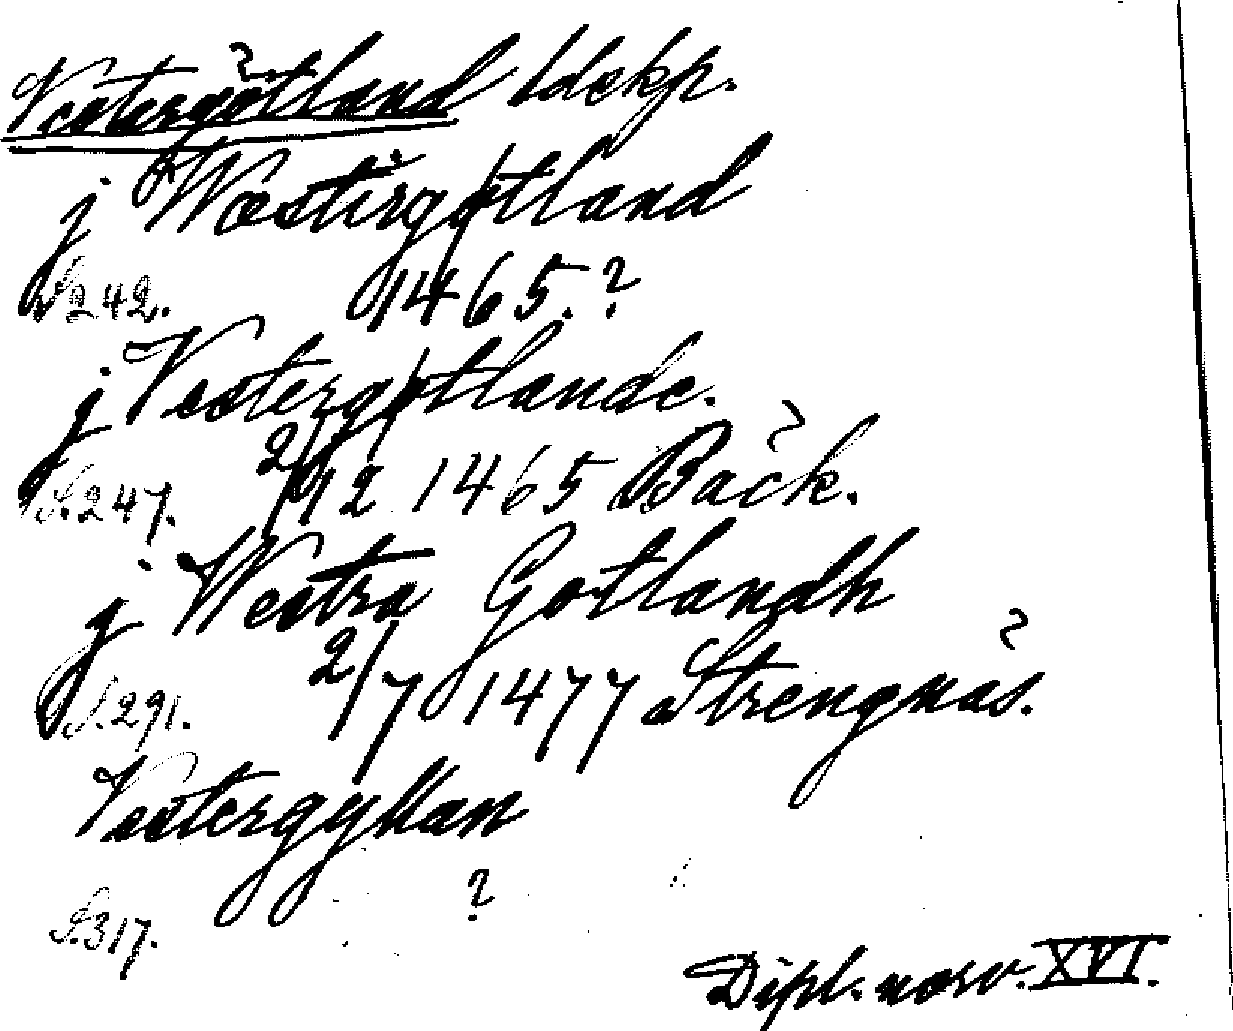 Vestergötland ldskp.
j Wæstirgøtland
S. 242. 1465.?
j Vestergøtlande.
S. 247. 2/12 1465 Bäck.
j Westra Gotlandh
S. 291. 2/7 1477 Strengnäs.
Vestergyllan
S. 317. ?
Dipl. norv. XVI.